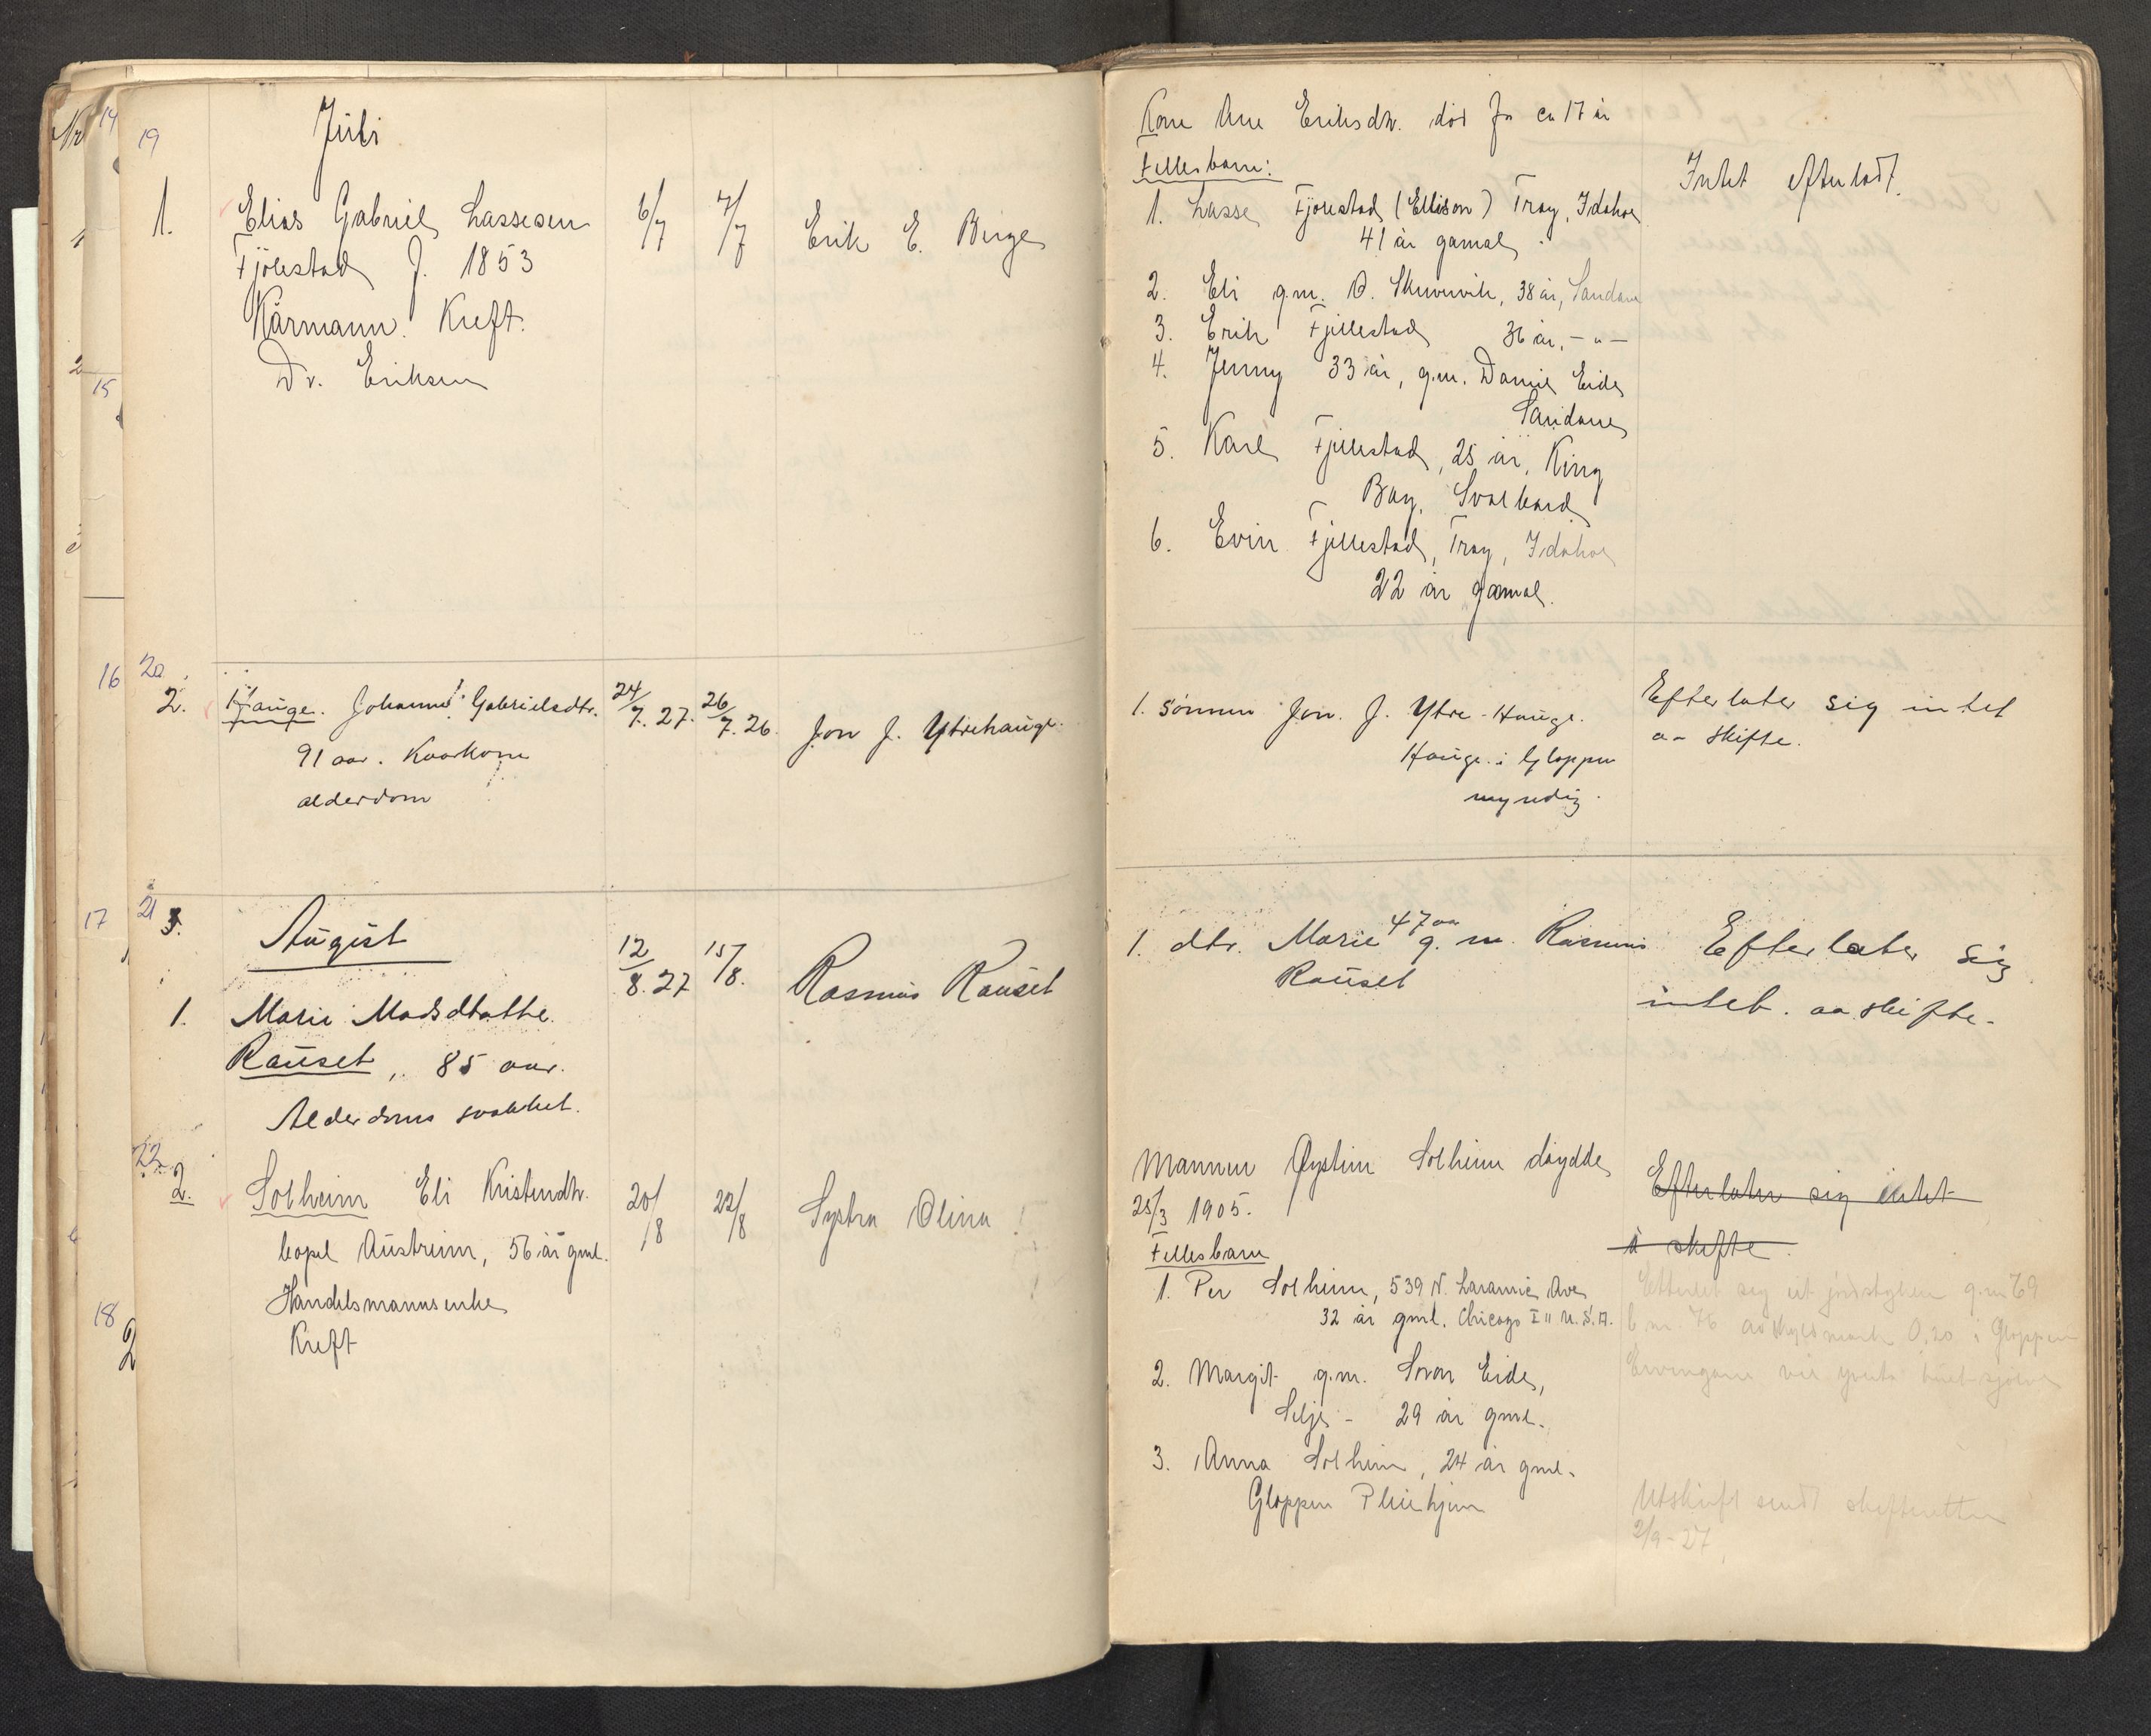 19
Juli
1.
Elias Gabriel Lassesen
Fjölestad f. 1853
Kårmann. Kreft.
Dr. Eriksen
6/7
7/7
Erik E. Berge
20
2.
Hauge. Johanne Gabrielsdtr.
91 aar. Kaarkone
alderdom
24/7. 27.
26/7. 26.
Jon J. Ytrehauge.
21
3.
August
1.
Marie Madsdtatte
Rauset, 85 aar.
Alderdoms svakhet.
12/8. 27
15/8.
Rasmus Rauset
22
2.
Solheim Eli Kristendtr.
Austreim, 56 år gml.
Handelsmannsenke
Kreft
20/8
22/8
Systra Olina
14
15
16
17
18
Kone Ane Eriksdtr. död for ca 17 år
Fellesbarn:
1. Lasse Fjölestad (Ellison) Troy, Idahoe
41 år gamal.
2. Eli g.m. O. 38 år, Sandane
3. Erik Fjellestad 36 år, - " -
4. Jenny 33 år, g.m. Daniel Eide
Sandane
5. Karl Fjellestad, 25 år, King
Bay, Svalbard
6. Evin Fjellestad, Troy, Idahoe
22 år gamal.
Intet efterladt
1. sönnen Jon. J. Ytre-Hauge.
Hauge i Gloppen
myndig.
Efterlater sig intet
aa skifte.
1. dtr. Marie 47 aa g. m. Rasmus
Rauset
Efterlater sig
intet. aa skifte-
Mannen Øystein Solheim döydde
25/3 1905.
Fellesbarn
1. Per Solheim, 539 N. Laramie Ave
32 år gml. Chicago Ill U.S.A.
2. Margit g.m. Sivar Eide,
Selje - 29 år gml.
3. Anna Solheim, 24 år gml.
Gloppen Pleiehjem
Efterlater sig intet
å skifte.
Etterlet seg eit jordstykke g.nr 69
b.nr. 76 av skyldmark 0,20 i Gloppen
Ervingane vil skifta buet sjölve
Utskrift sendt skifteretten
2/9-27.